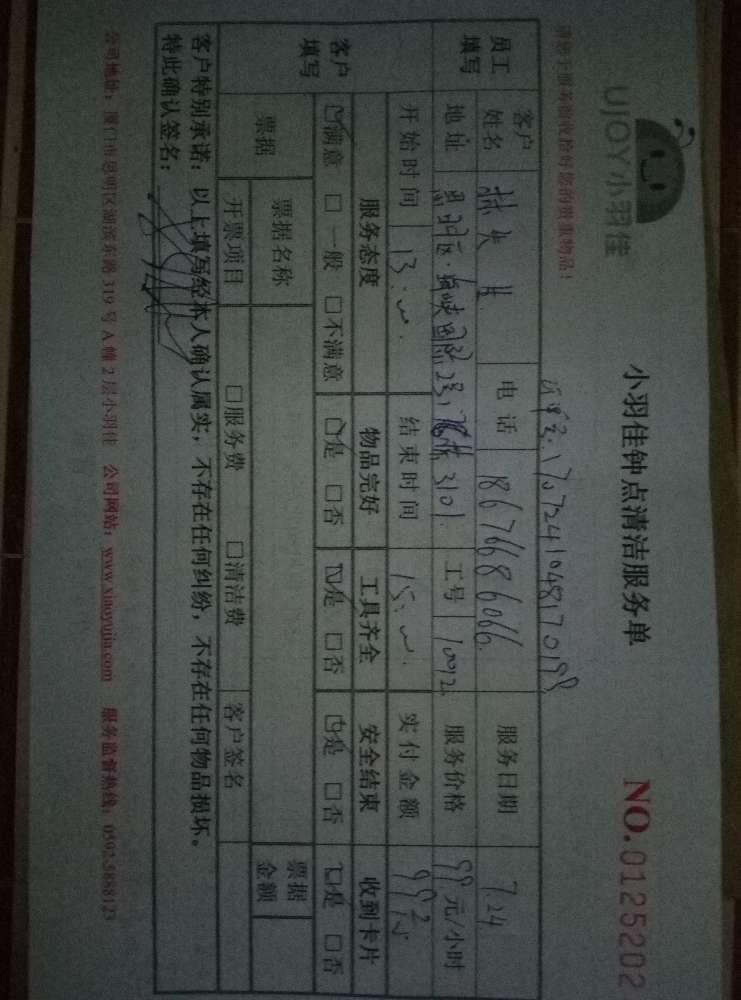 UJOY小羽佳
小羽佳钟点清洁服务单
NO.0125202
请您于服务验收恰好您的贵重物品!
1707241048170198
员工填写
客户姓名
林先生
电话
18676686066
服务日期
7.24
地址
3101
工号
10012
服务价格
99元/小时
开始时间
13:00
结束时间
15:00
实付金额
客户填写
服务态度
物品完好
工具齐全
安全结束
收到卡片
☑满意 □一般 □不满意
☑是 □否
☑是 □否
☑是 □否
☑是 □否
票据
票据名称
票据金额
开票项目
□服务费 □清洁费
客户签名
客户特别承诺:以上填写经本人确认属实,不存在任何纠纷,不存在任何物品损坏。
特此确认签名:
公司地址:厦门市思明区湖滨东路319号A幢2层小羽佳 公司网站:www.xiaoyujia.com 服务监督热线:0592-5888123